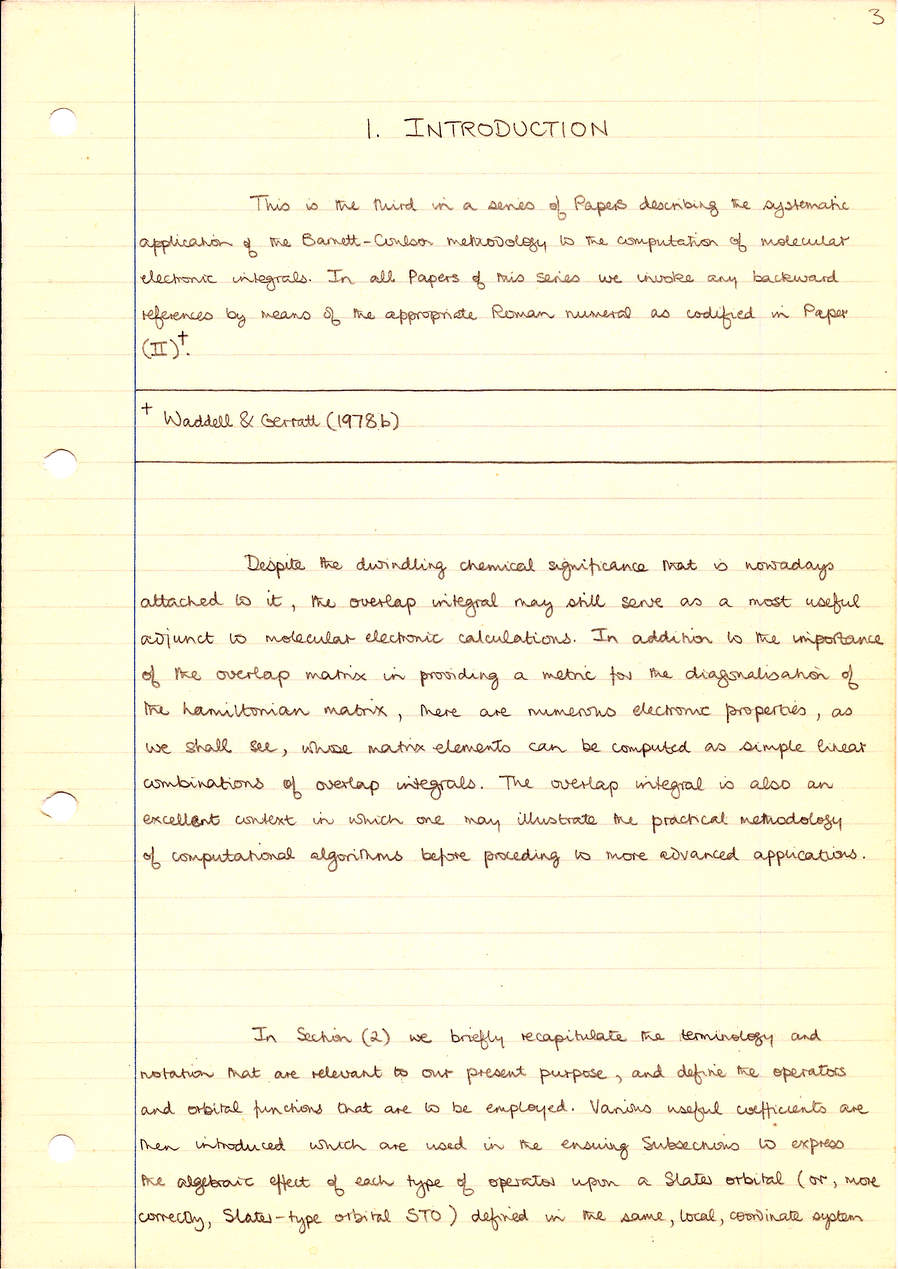 3
1. INTRODUCTION
This is the third in a series of Papers describing the systematic
application of the Barnett-Coulson methodology to the computation of molecular
electronic integrals. In all Papers of this series we invoke any backward
references by means of the appropriate Roman numeral as codified in Paper
(II)†.
† Waddell & Gerratt (1978b)
Despite the dwindling chemical significance that is nowadays
attached to it, the overlap integral may still serve as a most useful
adjunct to molecular electronic calculations. In addition to the importance
of the overlap matrix in providing a metric for the diagonalisation of
the hamiltonian matrix, there are numerous electronic properties, as
we shall see, whose matrix elements can be computed as simple linear
combinations of overlap integrals. The overlap integral is also an
excellent context in which one may illustrate the practical methodology
of computational algorithms before proceding to more advanced applications.
In Section (2) we briefly recapitulate the terminology and
notation that are relevant to our present purpose, and define the operators
and orbital functions that are to be employed. Various useful coefficients are
then introduced which are used in the ensuing Subsections to express
the algebraic effect of each type of operator upon a Slater orbital (or, more
correctly, Slater-type orbital STO) defined in the same, local, coordinate system